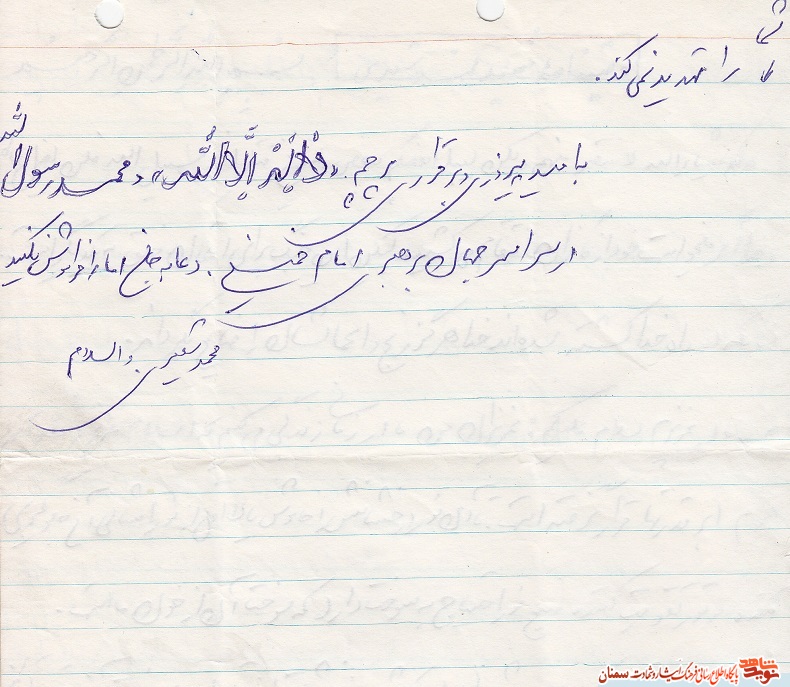 شما را تهدید نمی کند.
با امید پیروزی و برقراری پرچم «لا اله الا الله» و محمد رسول الله
در سراسر جهان به رهبری امام خمینی. دعا به جان امام را فراموش نکنید
والسلام
محمد شعیری
نوید شاهد
پایگاه اطلاع رسانی فرهنگ ایثار و شهادت سمنان